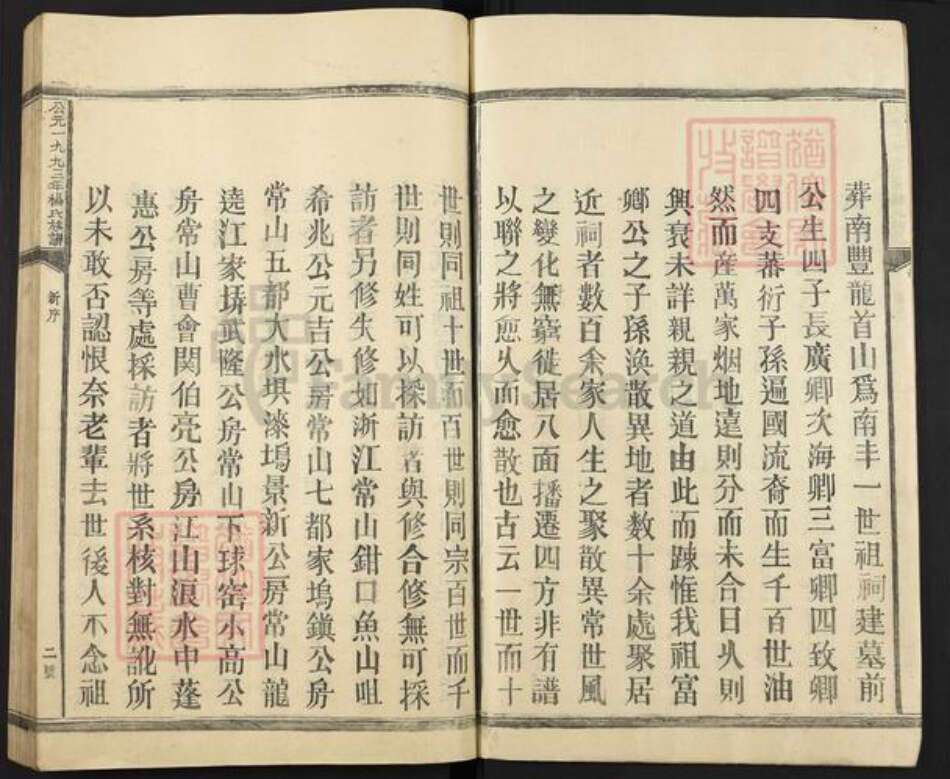 葬南豐龍首山爲南丰一世祖祠建墓前
公生四子長廣卿次海卿三富卿四致卿
四支蕃衍子孫遍國流裔而生千百世油
然而産萬家烟地遠則分而未合日久則
興衰未詳親親之道由此而踈惟我祖富
卿公之子孫渙散異地者数十余處聚居
近祠者數百余家人生之聚散異常世風
之變化無窮徙居八面播遷四方非有譜
以聯之將愈久而愈散也古云一世而十
世則同祖十世而百世則同宗百世而千
世則同姓可以採訪者與修合修無可採
訪者另修失修如浙江常山鉗口魚山咀
希兆公元吉公房常山七都家塢鎭公房
常山五都大水垻漆塢景新公房常山龍
遶江家塝武隆公房常山下球窑小高公
房常山曹會関伯亮公房江山淤水申蓬
惠公房等處採訪者將世系核對無訛所
以未敢否認恨奈老輩去世後人不念祖
公元一九九三年楊氏族譜
新序
二號
FamilySearch